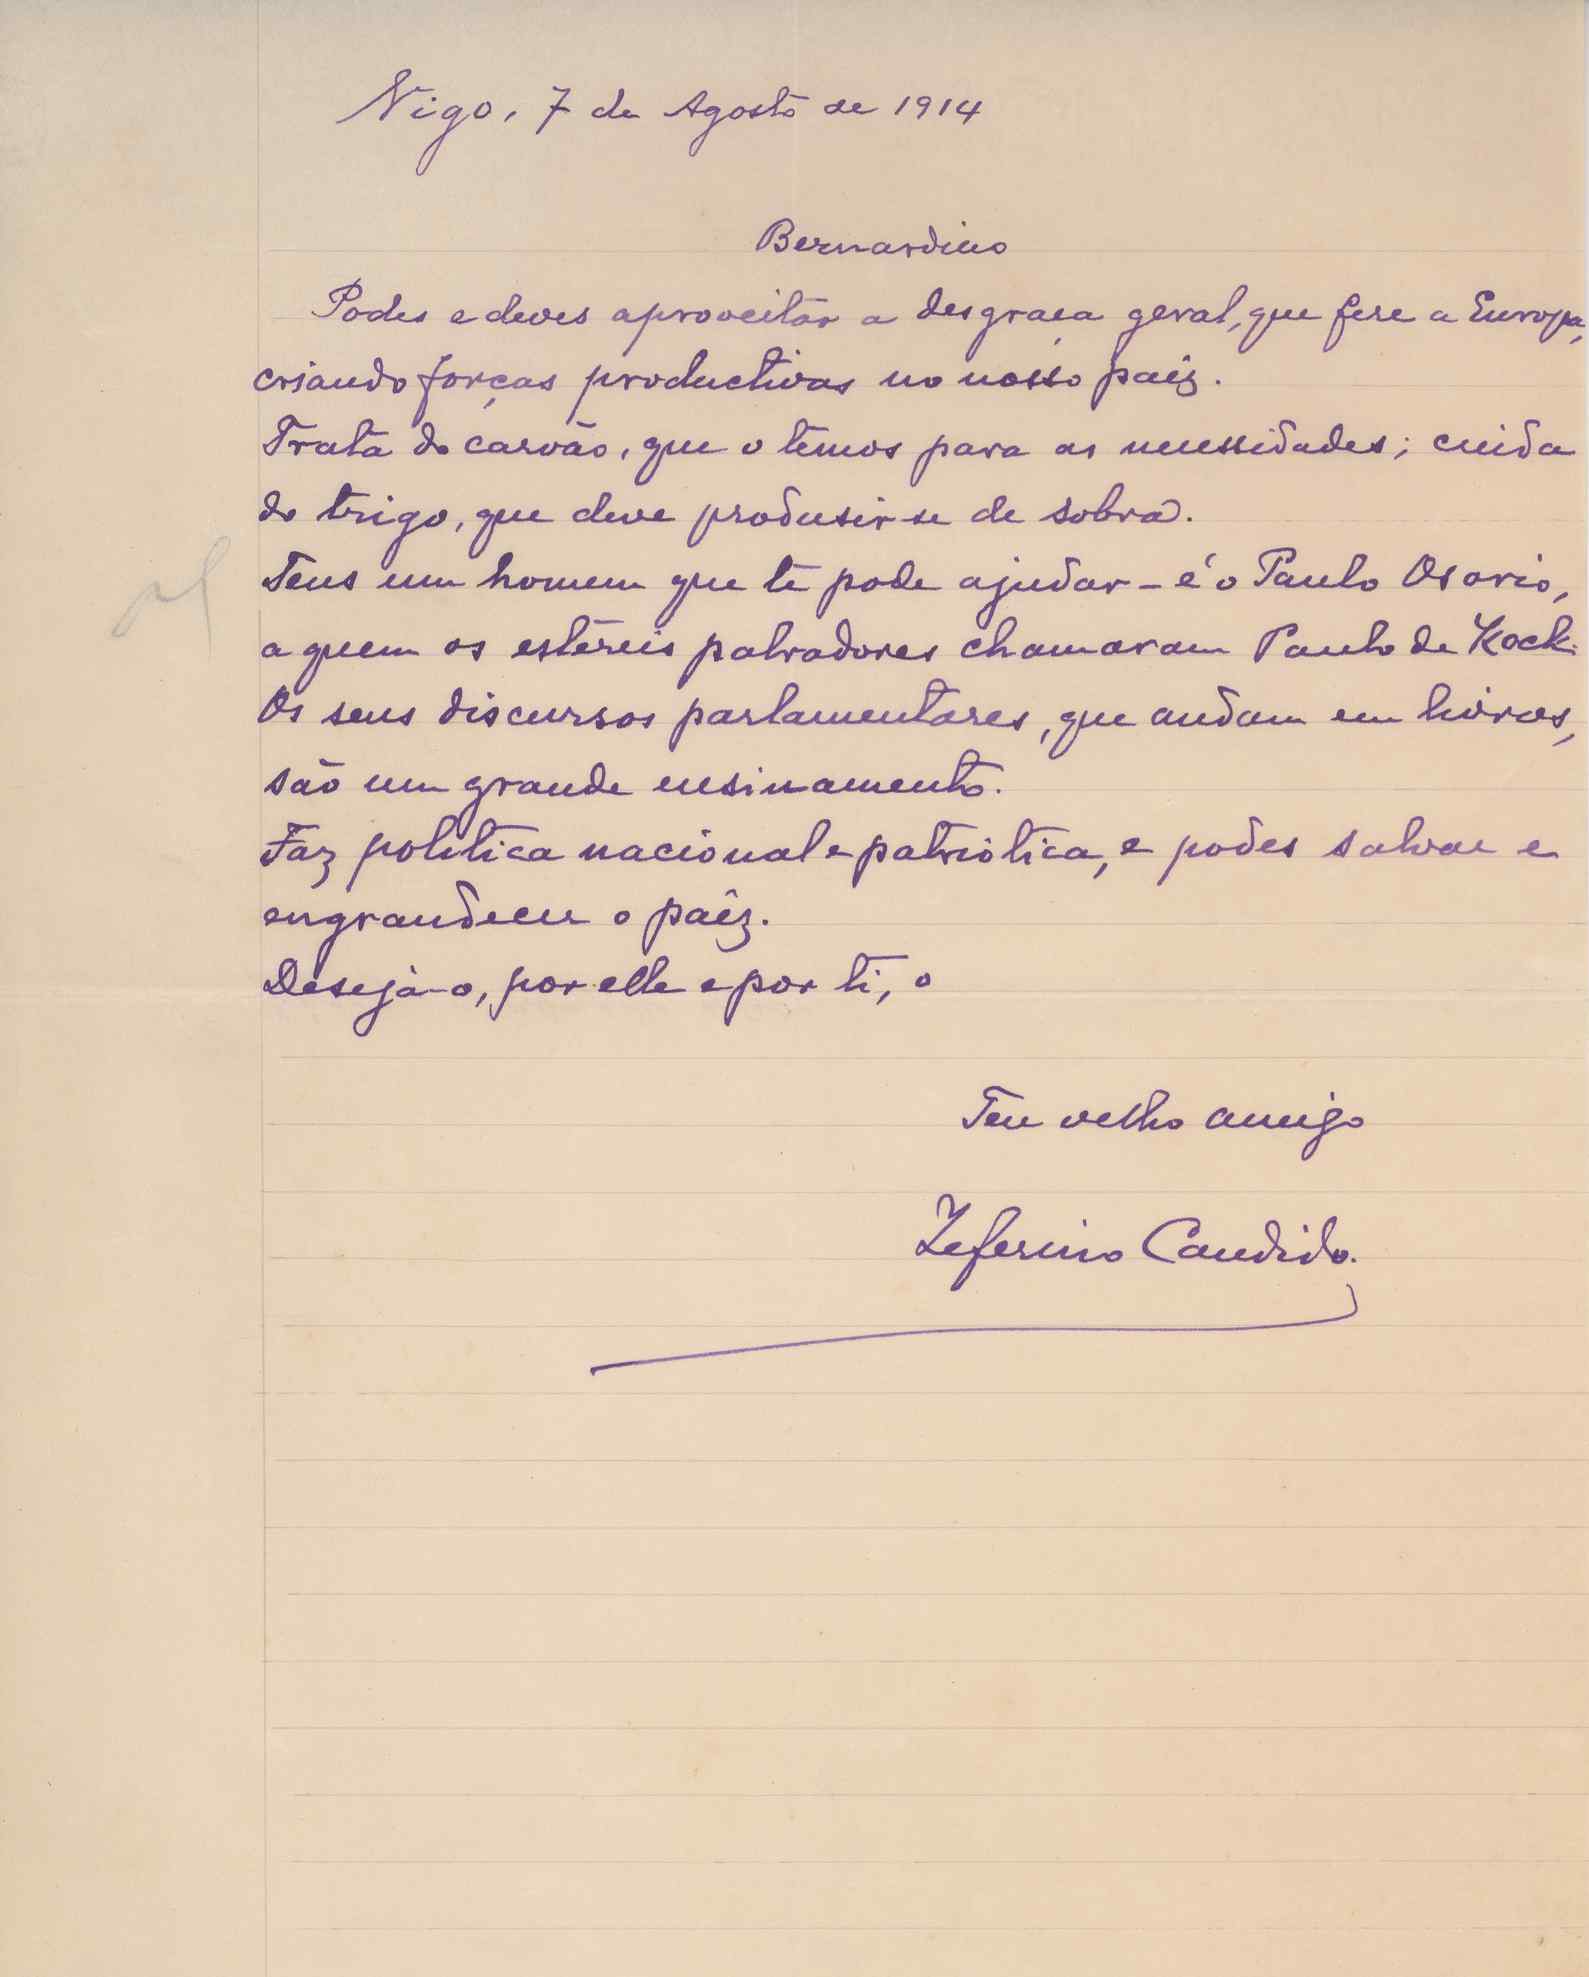 Vigo, 7 de Agosto de 1914
Bernardino
Podes e deves aproveitar a desgraça geral, que fere a Europa,
criando forças productivas no nosso paiz.
Trata do carvão, que o temos para as necessidades; cuida
do trigo, que deve produsir-se de sobra.
Tens um homem que te pode ajudar - é o Paulo Osorio,
a quem os estéreis palradores chamaram Paulo de Kock.
Os seus discursos parlamentares, que andam em livros,
são um grande ensinamento.
Faz politica nacional e patriótica, e podes salvar e
engrandecer o paiz.
Desejá-o, por elle e por ti, o
Teu velho amigo
Zeferino Candido.